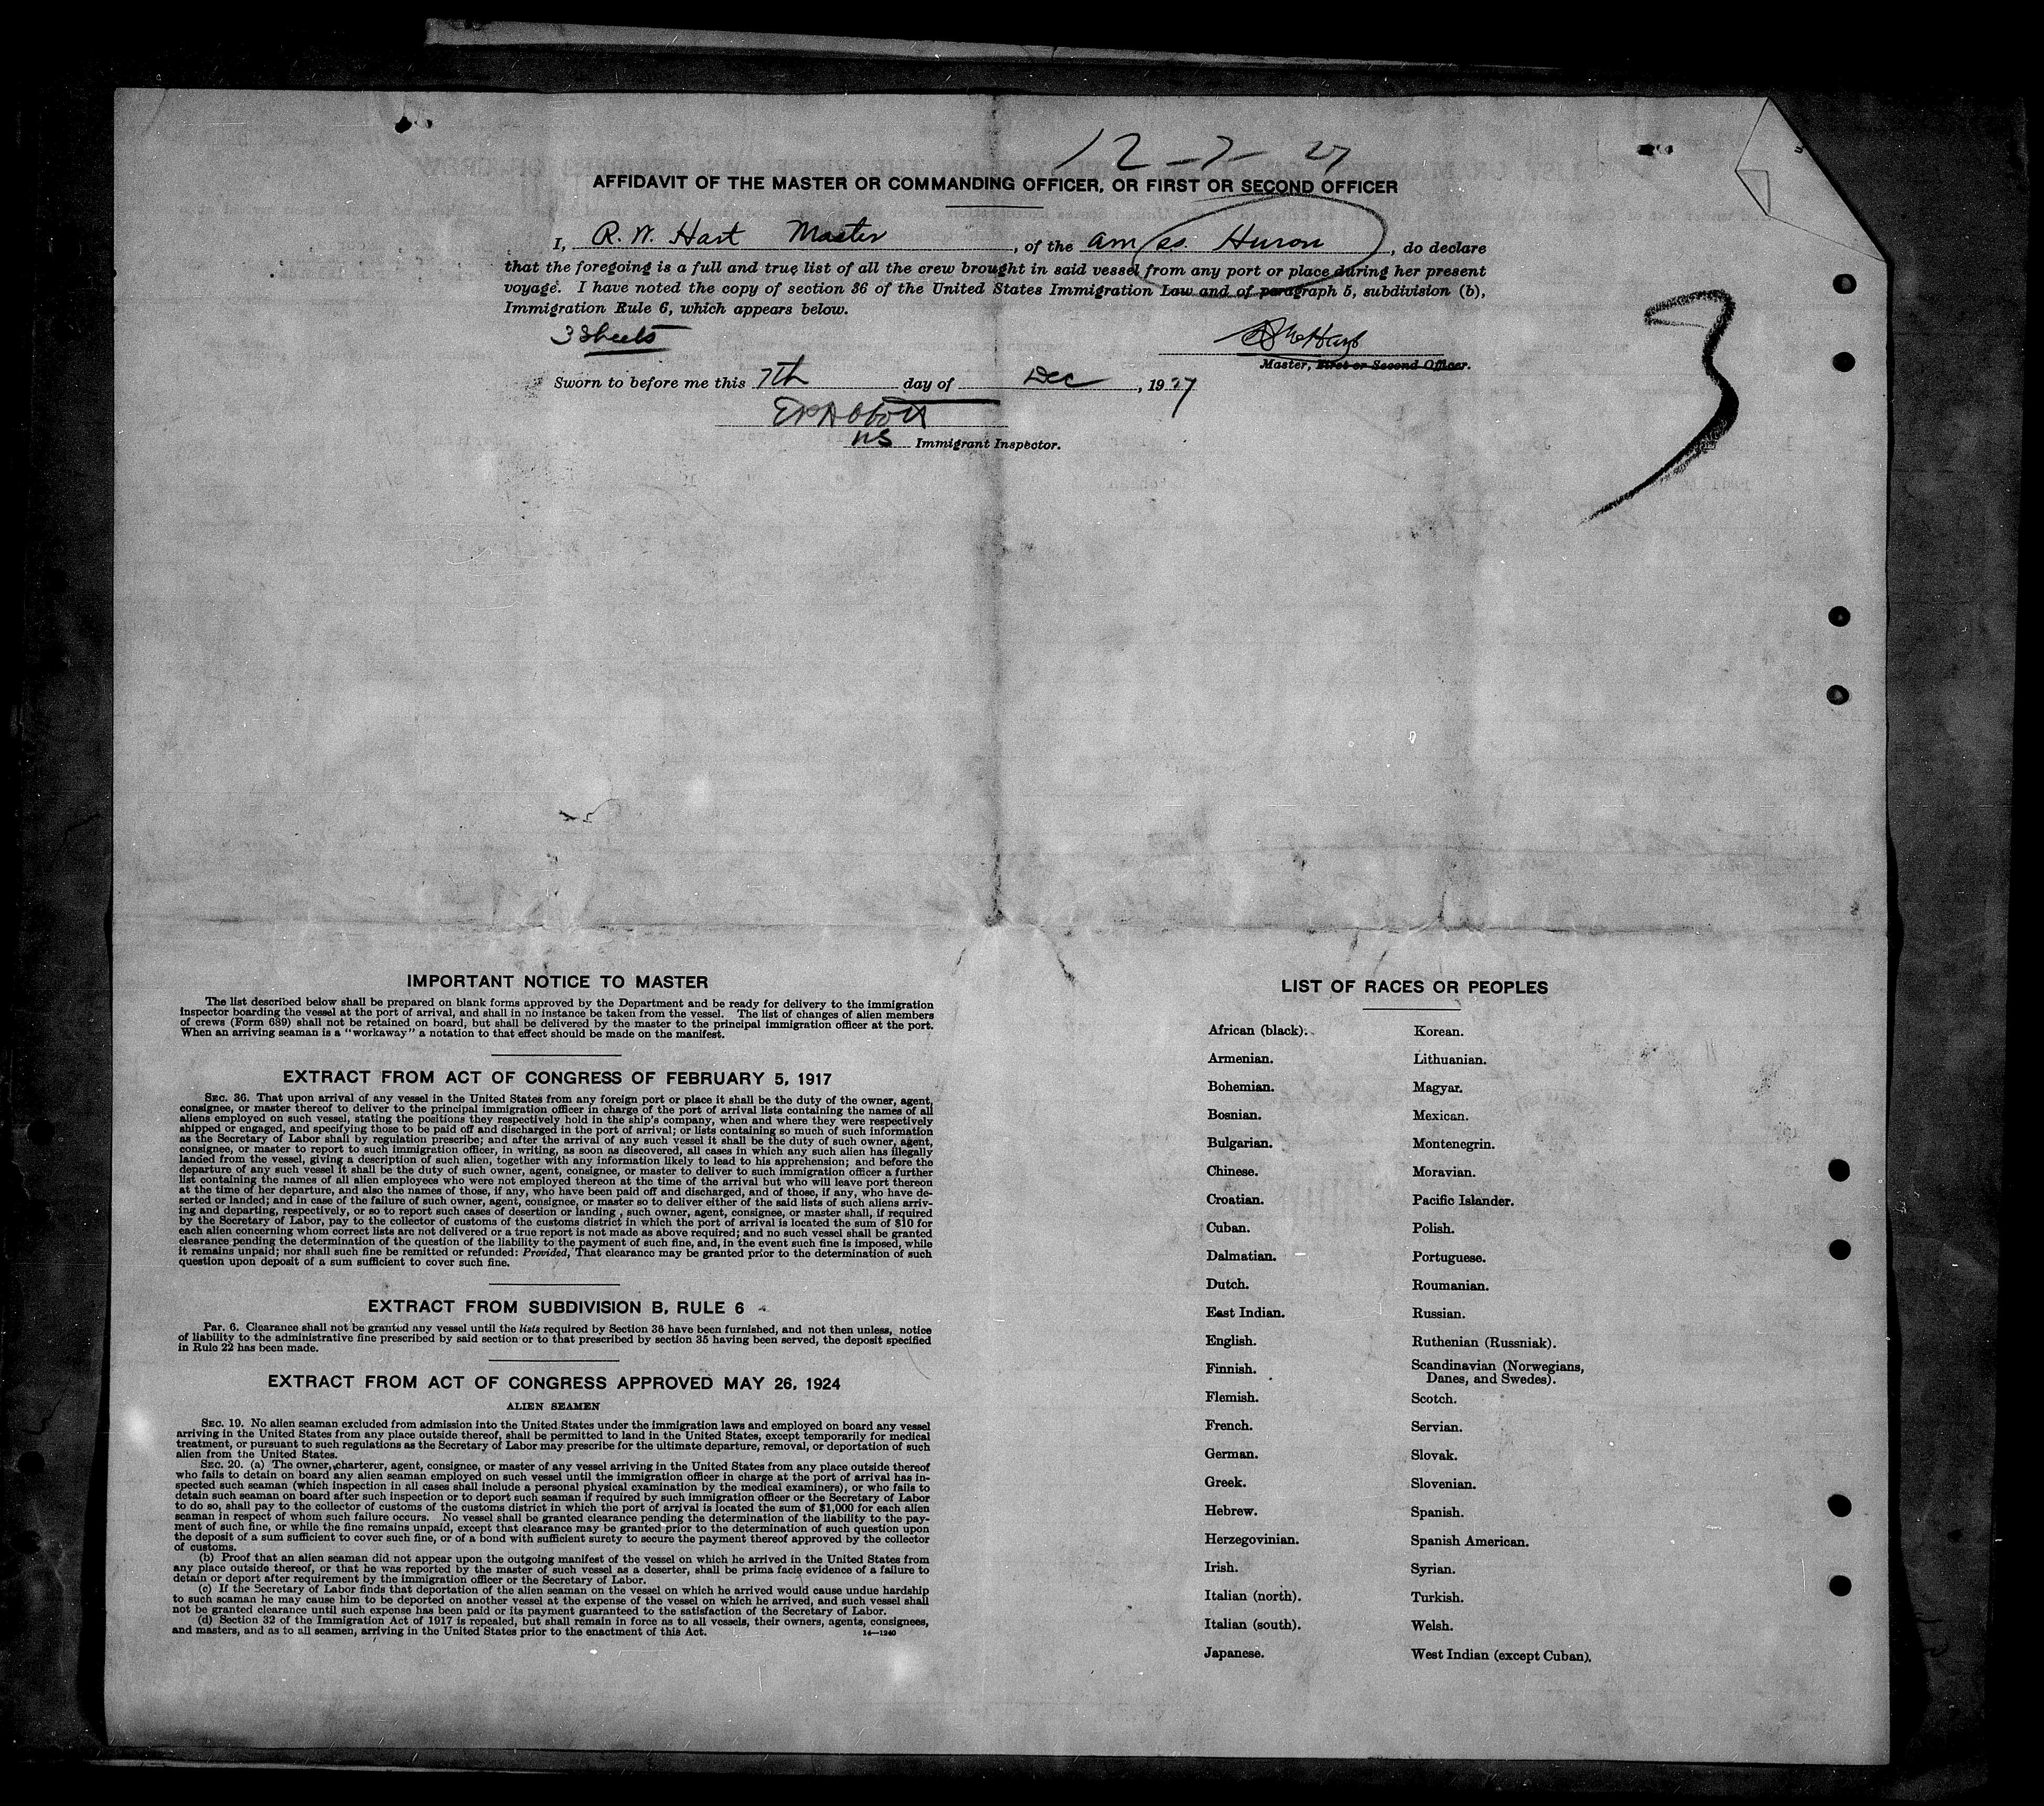 12-7-27
AFFIDAVIT OF THE MASTER OR COMMANDING OFFICER, OR FIRST OR SECOND OFFICER
I, R. W. Hart Master, of the Am ss. Huron, do declare
that the foregoing is a full and true list of all the crew brought in said vessel from any port or place during her present
voyage. I have noted the copy of section 36 of the United States Immigration Law and of paragraph 5, subdivision (b),
Immigration Rule 6, which appears below.
3 Sheets
Master, First or Second Officer.
Sworn to before me this 7th day of Dec, 1927
Immigrant Inspector.
3
IMPORTANT NOTICE TO MASTER
The list described below shall be prepared on blank forms approved by the Department and be ready for delivery to the immigration
inspector boarding the vessel at the port of arrival, and shall in no instance be taken from the vessel. The list of changes of alien members
of crews (Form 689) shall not be retained on board, but shall be delivered by the master to the principal immigration officer at the port.
When an arriving seaman is a "workaway" a notation to that effect should be made on the manifest.
EXTRACT FROM ACT OF CONGRESS OF FEBRUARY 5, 1917
SEC. 36. That upon arrival of any vessel in the United States from any foreign port or place it shall be the duty of the owner, agent,
consignee, or master thereof to deliver to the principal immigration officer in charge of the port of arrival lists containing the names of all
aliens employed on such vessel, stating the positions they respectively hold in the ship's company, when and where they were respectively
shipped or engaged, and specifying those to be paid off and discharged in the port of arrival; or lists containing so much of such information
as the Secretary of Labor shall by regulation prescribe; and after the arrival of any such vessel it shall be the duty of such owner, agent,
consignee, or master to report to such immigration officer, in writing, as soon as discovered, all cases in which any such alien has illegally
landed from the vessel, giving a description of such alien, together with any information likely to lead to his apprehension; and before the
departure of any such vessel it shall be the duty of such owner, agent, consignee, or master to deliver to such immigration officer a further
list containing the names of all alien employees who were not employed thereon at the time of the arrival but who will leave port thereon
at the time of her departure, and also the names of those, if any, who have been paid off and discharged, and of those, if any, who have de-
serted or landed; and in case of the failure of such owner, agent, consignee, or master so to deliver either of the said lists of such aliens arriv-
ing and departing, respectively, or so to report such cases of desertion or landing , such owner, agent, consignee, or master shall, if required
by the Secretary of Labor, pay to the collector of customs of the customs district in which the port of arrival is located the sum of $10 for
each alien concerning whom correct lists are not delivered or a true report is not made as above required; and no such vessel shall be granted
clearance pending the determination of the question of the liability to the payment of such fine, and, in the event such fine is imposed, while
it remains unpaid; nor shall such fine be remitted or refunded: Provided, That clearance may be granted prior to the determination of such
question upon deposit of a sum sufficient to cover such fine.
EXTRACT FROM SUBDIVISION B, RULE 6
PAR. 6. Clearance shall not be granted any vessel until the lists required by Section 36 have been furnished, and not then unless, notice
of liability to the administrative fine prescribed by said section or to that prescribed by section 35 having been served, the deposit specified
in Rule 22 has been made.
EXTRACT FROM ACT OF CONGRESS APPROVED MAY 26, 1924
ALIEN SEAMEN
SEC. 19. No alien seaman excluded from admission into the United States under the immigration laws and employed on board any vessel
arriving in the United States from any place outside thereof, shall be permitted to land in the United States, except temporarily for medical
treatment, or pursuant to such regulations as the Secretary of Labor may prescribe for the ultimate departure, removal, or deportation of such
alien from the United States.
SEC. 20. (a) The owner, charterer, agent, consignee, or master of any vessel arriving in the United States from any place outside thereof
who fails to detain on board any alien seaman employed on such vessel until the immigration officer in charge at the port of arrival has in-
spected such seaman (which inspection in all cases shall include a personal physical examination by the medical examiners), or who fails to
detain such seaman on board after such inspection or to deport such seaman if required by such immigration officer or the Secretary of Labor
to do so, shall pay to the collector of customs of the customs district in which the port of arrival is located the sum of $1,000 for each alien
seaman in respect of whom such failure occurs. No vessel shall be granted clearance pending the determination of the liability to the pay-
ment of such fine, or while the fine remains unpaid, except that clearance may be granted prior to the determination of such question upon
the deposit of a sum sufficient to cover such fine, or of a bond with sufficient surety to secure the payment thereof approved by the collector
of customs.
(b) Proof that an alien seaman did not appear upon the outgoing manifest of the vessel on which he arrived in the United States from
any place outside thereof, or that he was reported by the master of such vessel as a deserter, shall be prima facie evidence of a failure to
detain or deport after requirement by the immigration officer or the Secretary of Labor.
(c) If the Secretary of Labor finds that deportation of the alien seaman on the vessel on which he arrived would cause undue hardship
to such seaman he may cause him to be deported on another vessel at the expense of the vessel on which he arrived, and such vessel shall
not be granted clearance until such expense has been paid or its payment guaranteed to the satisfaction of the Secretary of Labor.
(d) Section 32 of the Immigration Act of 1917 is repealed, but shall remain in force as to all vessels, their owners, agents, consignees,
and masters, and as to all seamen, arriving in the United States prior to the enactment of this Act.
14—1240
LIST OF RACES OR PEOPLES
African (black).
Armenian.
Bohemian.
Bosnian.
Bulgarian.
Chinese.
Croatian.
Cuban.
Dalmatian.
Dutch.
East Indian.
English.
Finnish.
Flemish.
French.
German.
Greek.
Hebrew.
Herzegovinian.
Irish.
Italian (north).
Italian (south).
Japanese.
Korean.
Lithuanian.
Magyar.
Mexican.
Montenegrin.
Moravian.
Pacific Islander.
Polish.
Portuguese.
Roumanian.
Russian.
Ruthenian (Russniak).
Scandinavian (Norwegians,
Danes, and Swedes).
Scotch.
Servian.
Slovak.
Slovenian.
Spanish.
Spanish American.
Syrian.
Turkish.
Welsh.
West Indian (except Cuban).